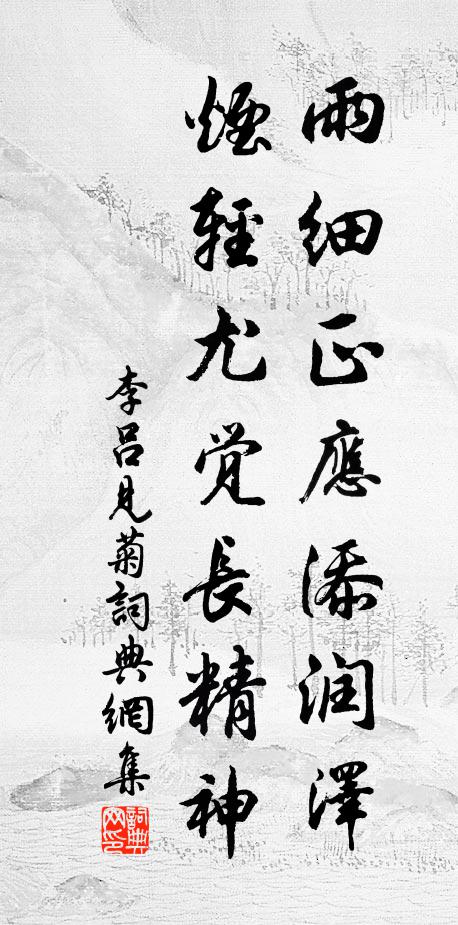 雨細正應添润澤
煙輕尤觉長精神
李吕見菊詞典網集
詞典網印